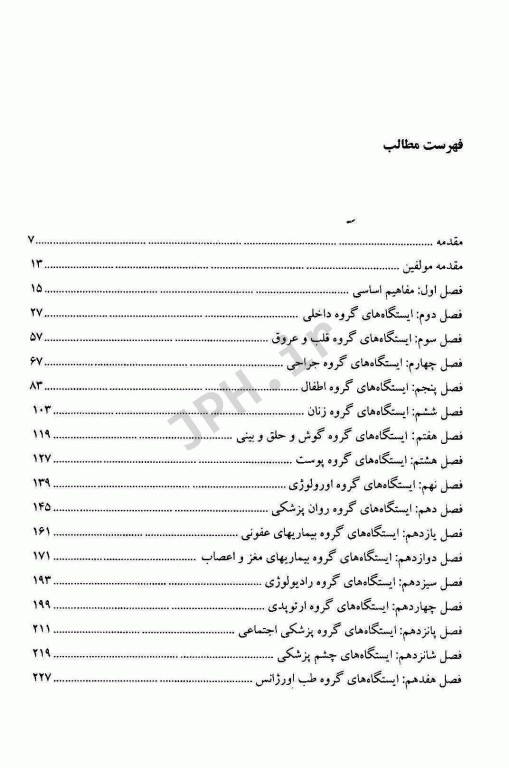 فهرست مطالب
مقدمه ................................................ ۷
مقدمه مولفین ................................................ ۱۳
فصل اول: مفاهیم اساسی ................................................ ۱۵
فصل دوم: ایستگاه‌های گروه داخلی ................................................ ۲۷
فصل سوم: ایستگاه‌های گروه قلب و عروق ................................................ ۵۷
فصل چهارم: ایستگاه‌های گروه جراحی ................................................ ۶۷
فصل پنجم: ایستگاه‌های گروه اطفال ................................................ ۸۳
فصل ششم: ایستگاه‌های گروه زنان ................................................ ۱۰۳
فصل هفتم: ایستگاه‌های گروه گوش و حلق و بینی ................................................ ۱۱۹
فصل هشتم: ایستگاه‌های گروه پوست ................................................ ۱۲۷
فصل نهم: ایستگاه‌های گروه اورولوژی ................................................ ۱۳۹
فصل دهم: ایستگاه‌های گروه روان پزشکی ................................................ ۱۴۵
فصل یازدهم: ایستگاه‌های گروه بیماریهای عفونی ................................................ ۱۶۱
فصل دوازدهم: ایستگاه‌های گروه بیماریهای مغز و اعصاب ................................................ ۱۷۱
فصل سیزدهم: ایستگاه‌های گروه رادیولوژی ................................................ ۱۹۳
فصل چهاردهم: ایستگاه‌های گروه ارتوپدی ................................................ ۱۹۹
فصل پانزدهم: ایستگاه‌های گروه پزشکی اجتماعی ................................................ ۲۱۱
فصل شانزدهم: ایستگاه‌های چشم پزشکی ................................................ ۲۱۹
فصل هفدهم: ایستگاه‌های گروه طب اورژانس ................................................ ۲۲۷
JPH.ir